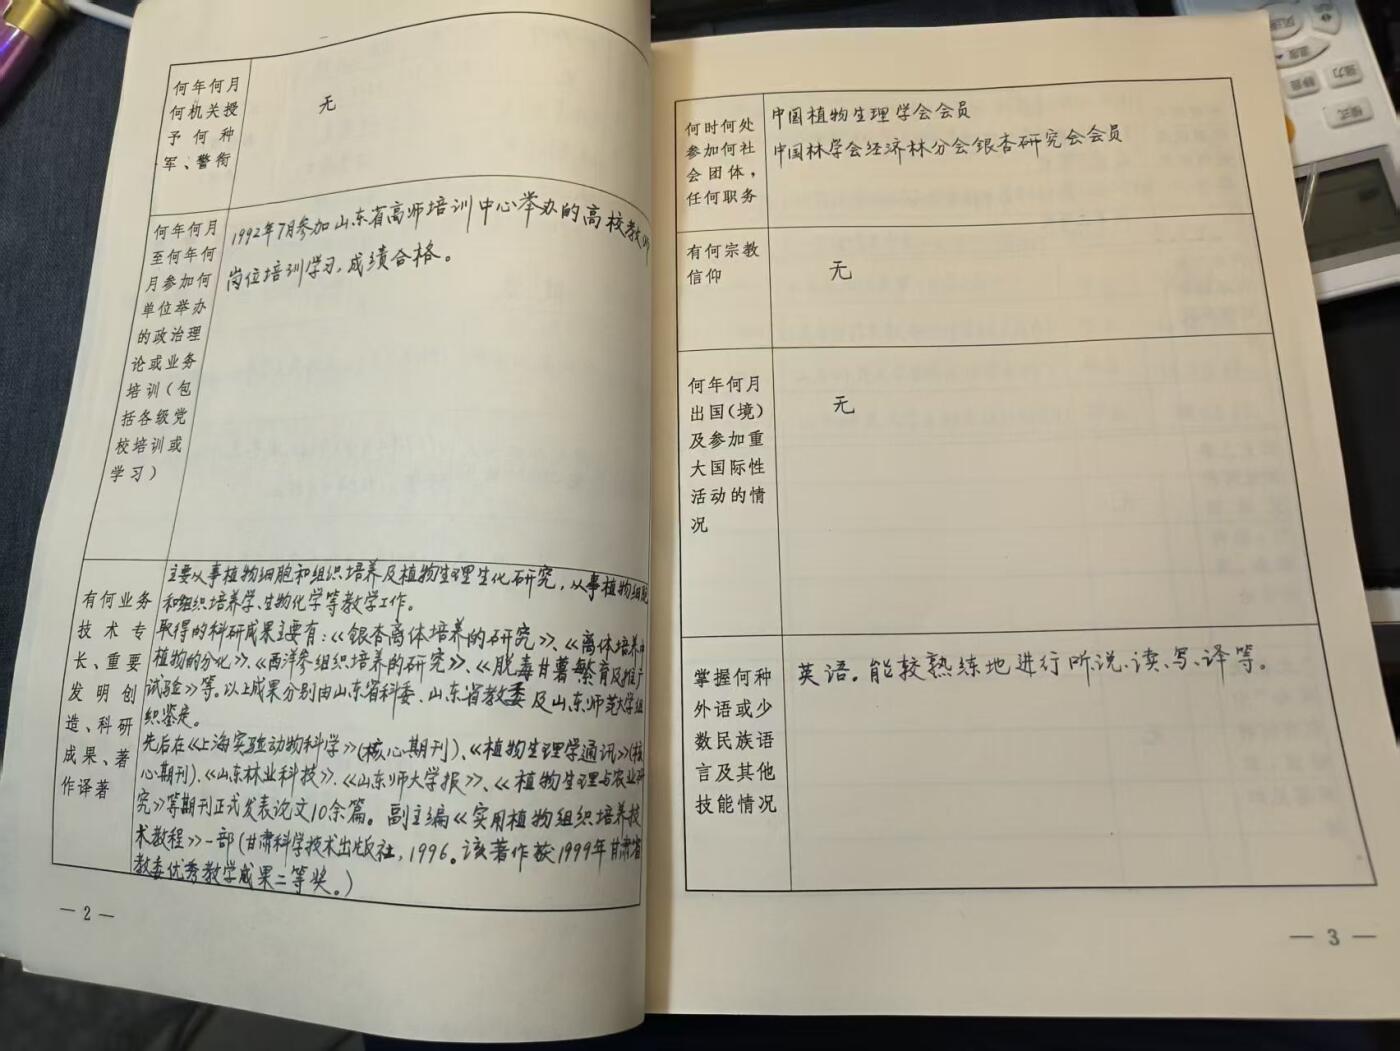 何年何月
何机关授
予何种
军、警衔
无
何年何月
至何年何
月参加何
单位举办
的政治理
论或业务
培训(包
括各级党
校培训或
学习)
1992年7月参加山东省高师培训中心举办的高校教师
岗位培训学习,成绩合格。
有何业务
技术专
长、重要
发明创
造、科研
成果、著
作译著
主要从事植物细胞和组织培养及植物生理生化研究,从事植物细胞
和组织培养学、生物化学等教学工作。
取得的科研成果主要有:《银杏离体培养的研究》、《离体培养中
植物的分化》、《西洋参组织培养的研究》、《脱毒甘薯繁育及推广
试验》等。以上成果分别由山东省科委、山东省教委及山东师范大学组
织鉴定。
先后在《上海实验动物科学》(核心期刊)、《植物生理学通讯》(核
心期刊)、《山东林业科技》、《山东师大学报》、《植物生理与农业研
究》等期刊正式发表论文10余篇。副主编《实用植物组织培养技
术教程》一部(甘肃科学技术出版社,1996。该著作获1999年甘肃省
教委优秀教学成果二等奖。)
— 2 —
何时何处
参加何社
会团体,
任何职务
中国植物生理学会会员
中国林学会经济林分会银杏研究会会员
有何宗教
信仰
无
何年何月
出国(境)
及参加重
大国际性
活动的情
况
无
掌握何种
外语或少
数民族语
言及其他
技能情况
英语。能较熟练地进行听说、读、写、译等。
— 3 —
风速
温度
强力
静音
模式